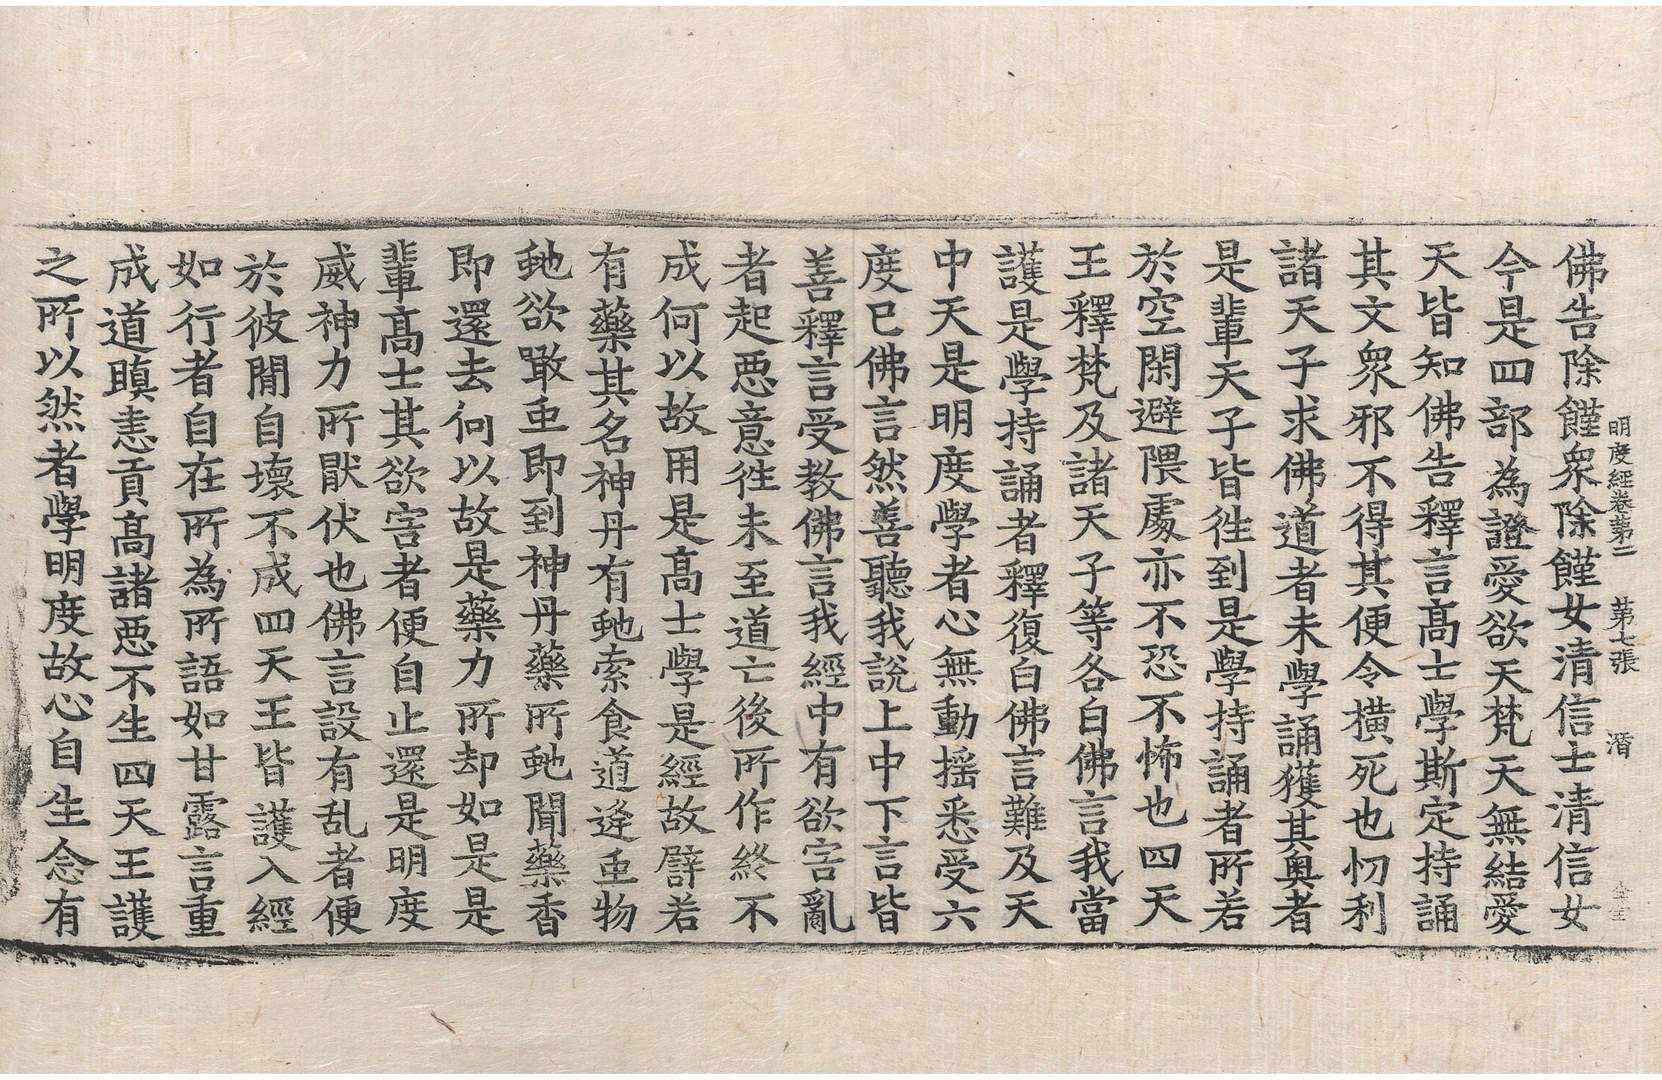 明度經卷第二　第七張　潛
佛告除饉衆除饉女清信士清信女
今是四部為證愛欲天梵天無結愛
天皆知佛告釋言高士學斯定持誦
其文衆邪不得其便令橫死也忉利
諸天子求佛道者未學誦獲其奧者
是輩天子皆徃到是學持誦者所若
於空閑避隈處亦不恐不怖也四天
王釋梵及諸天子等各白佛言我當
護是學持誦者釋復白佛言難及天
中天是明度學者心無動搖悉受六
度已佛言然善聽我說上中下言皆
善釋言受教佛言我經中有欲害亂
者起惡意徃未至道亡後所作終不
成何以故用是高士學是經故譬若
有藥其名神丹有虵索食道逢虫物
虵欲噉虫即到神丹藥所虵聞藥香
即還去何以故是藥力所却如是是
輩高士其欲害者便自止還是明度
威神力所猒伏也佛言設有乱者便
於彼閒自壞不成四天王皆護入經
如行者自在所為所語如甘露言重
成道瞋恚貢高諸惡不生四天王護
之所以然者學明度故心自生念有